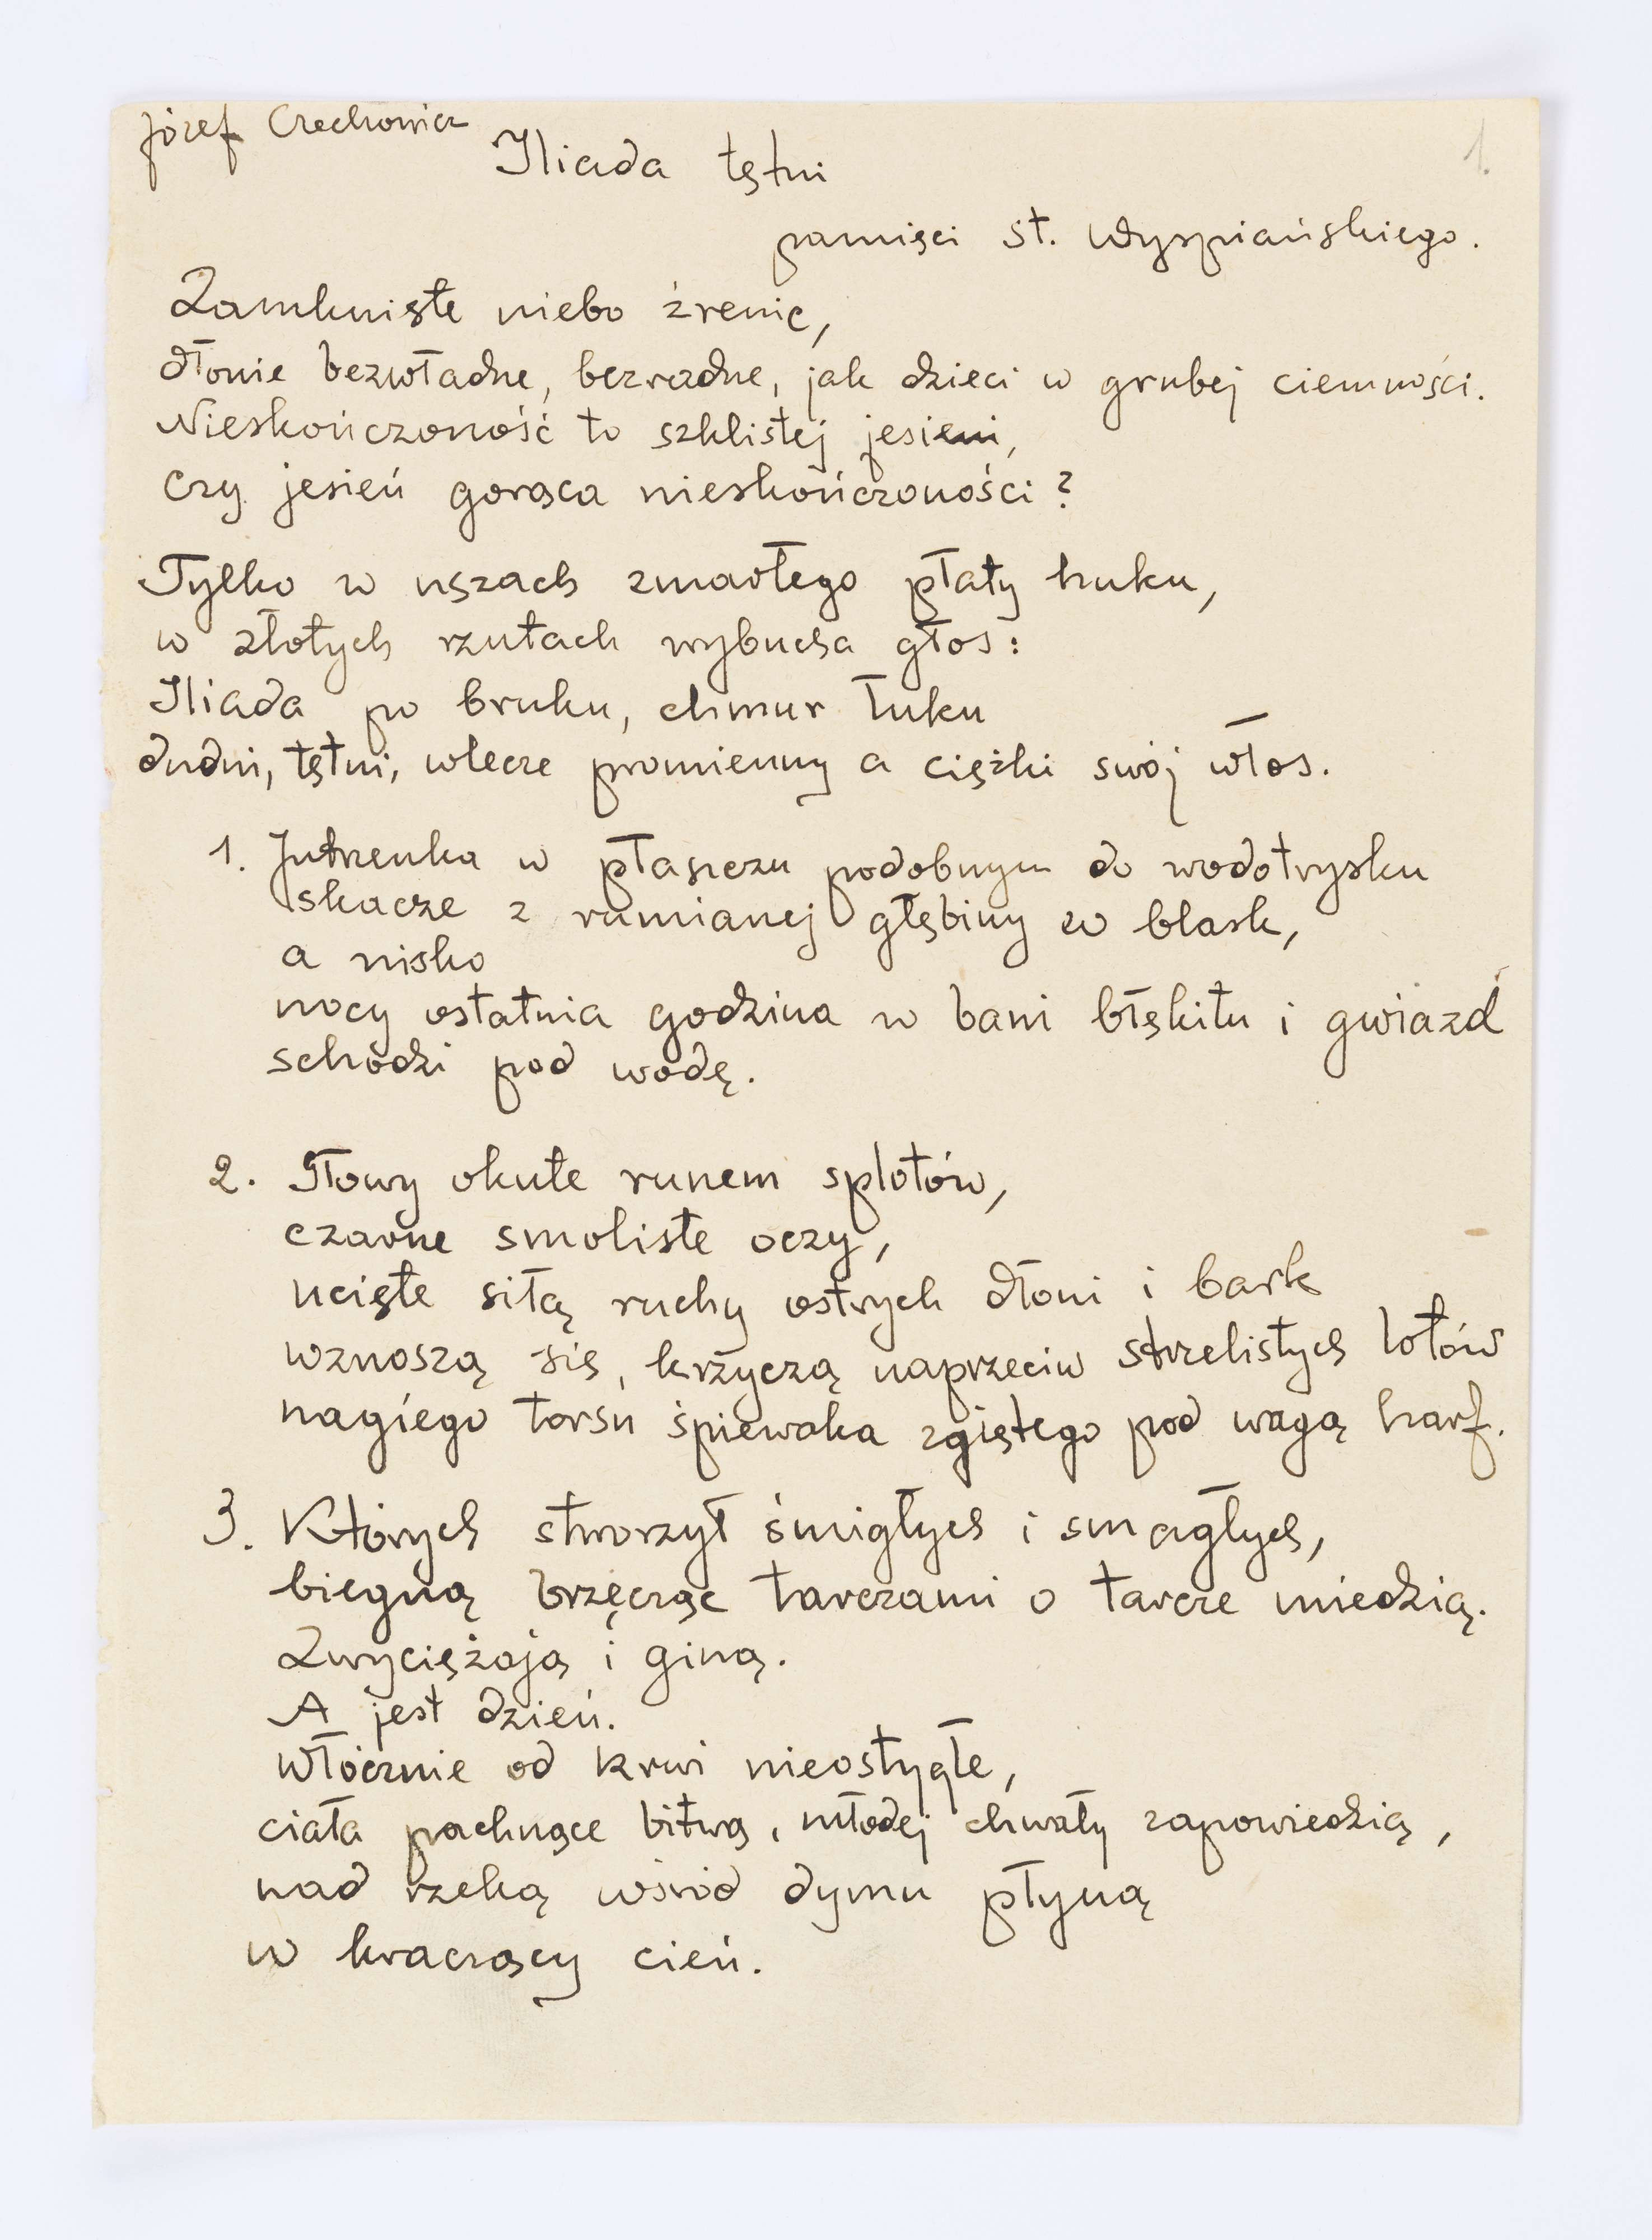 Józef Czechowicz
1.
Iliada tętni
pamięci St. Wyspiańskiego.
Zamknięte niebo źrenic,
dłonie bezwładne, bezradne, jak dzieci w grubej ciemności.
Nieskończoność to szklistej jesieni,
czy jesień gorąca nieskończoności?
Tylko w uszach zmarłego płaty huku,
w złotych rzutach wybucha głos:
Iliada po bruku, chmur łuku
dudni, tętni, wlecze promienny a ciężki swój włos.
1. Jutrzenka w płaszczu podobnym do wodotrysku
skacze z rumianej głębiny w blask,
a nisko
nocy ostatnia godzina w bani błękitu i gwiazd
schodzi pod wodę.
2. Głowy okute runem splotów,
czarne smoliste oczy,
ucięte siłą ruchy ostrych dłoni i bark
wznoszą się, krzyczą naprzeciw strzelistych lotów
nagiego torsu śpiewaka zgiętego pod wagą harf.
3. Których stworzył śmigłych i smagłych,
biegną brzęcząc tarczami o tarcze miedzią.
Zwyciężają i giną.
A jest dzień.
Włócznie od krwi nieostygłe,
ciała pachnące bitwą, młodej chwały zapowiedzią,
nad rzeką wśród dymu płyną
w kraczący cień.